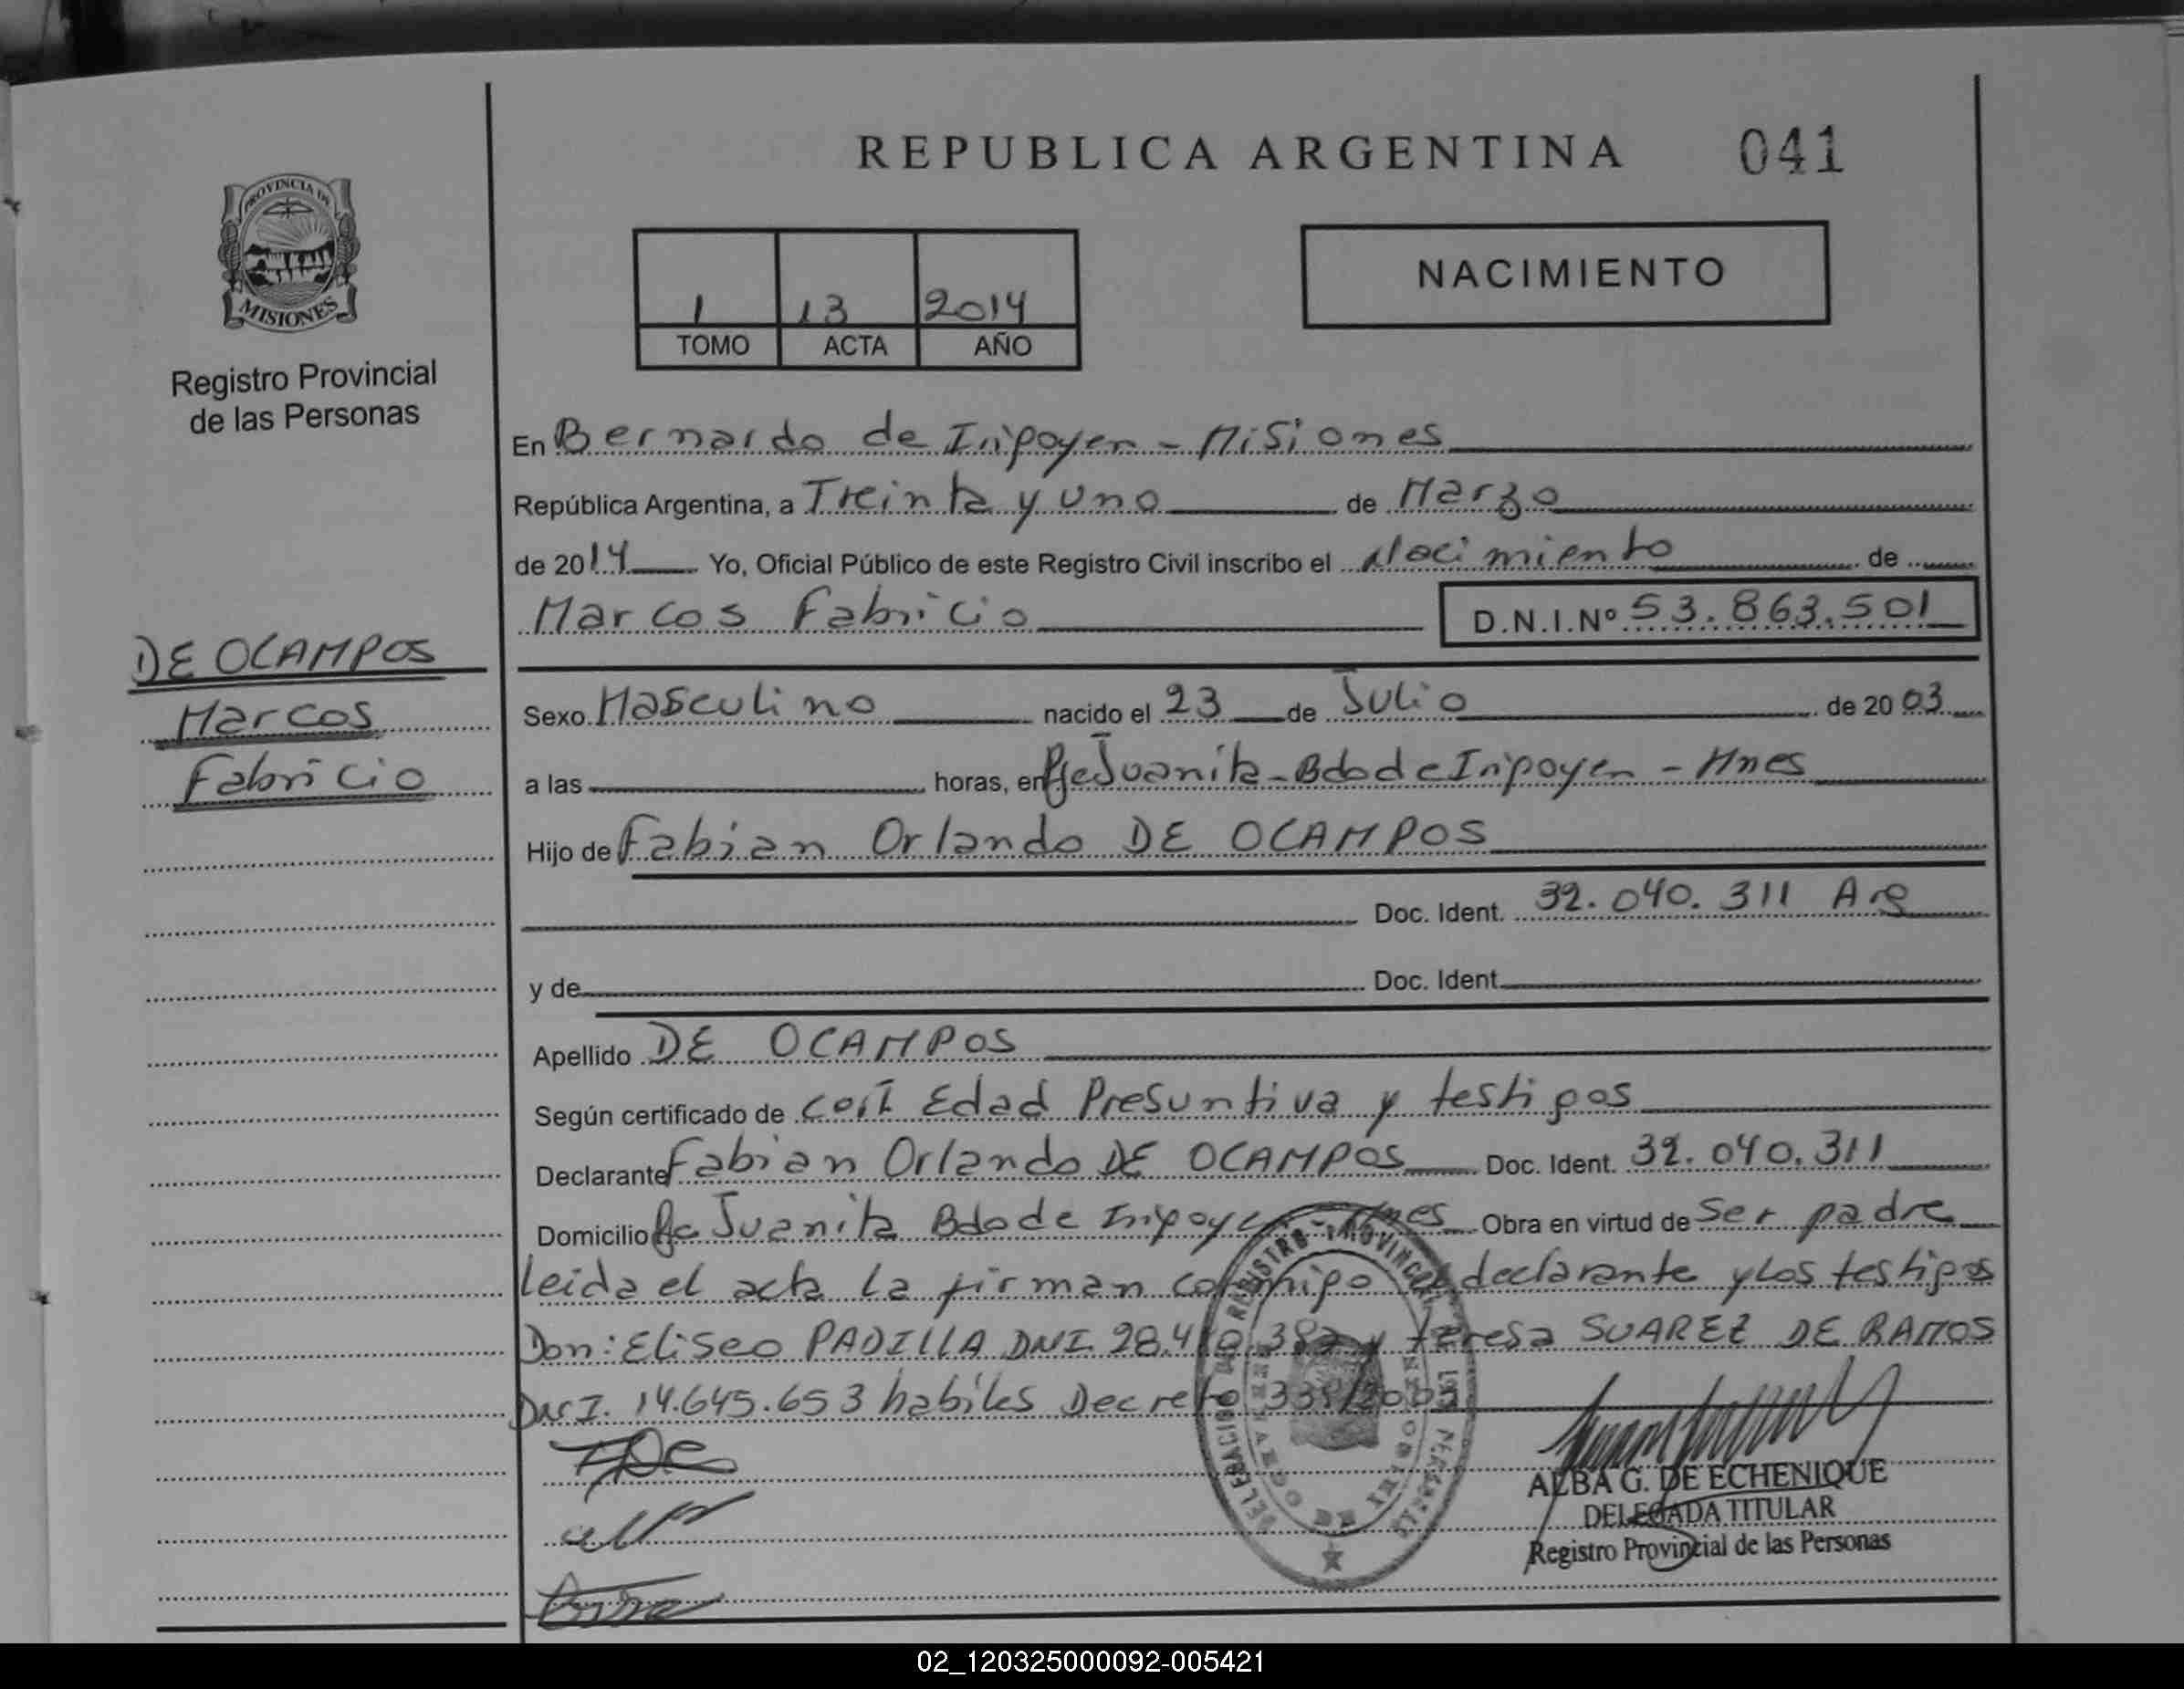 REPUBLICA ARGENTINA 041
PROVINCIA DE
MISIONES
Registro Provincial
de las Personas
1 13 2014
TOMO ACTA AÑO
NACIMIENTO
En Bernardo de Iripoyen - Misiones
República Argentina, a Treinta y uno de Marzo
de 2014 Yo, Oficial Público de este Registro Civil inscribo el Nacimiento de
Marcos Fabricio D.N.I.Nº 53.863.501
DE OCAMPOS
Marcos
Fabricio
Sexo Masculino nacido el 23 de Julio de 2003
a las horas, en Pje Juanita - Bdo de Iripoyen - Mnes
Hijo de Fabian Orlando DE OCAMPOS
Doc. Ident. 32.040.311 Arg
y de Doc. Ident.
Apellido DE OCAMPOS
Según certificado de Edad Presuntiva y testigos
Declarante Fabian Orlando DE OCAMPOS Doc. Ident. 32.040.311
Domicilio Juanita Bdo de Iripoyen - Mnes Obra en virtud de Ser padre
leida el acta la firman conmigo el declarante y los testigos
Don: Eliseo PADILLA DNI. y teresa SUAREZ DE RAMOS
DNI. 14.645.653 habiles Decreto
ALBA G. DE ECHENIQUE
DELEGADA TITULAR
Registro Provincial de las Personas
02_120325000092-005421